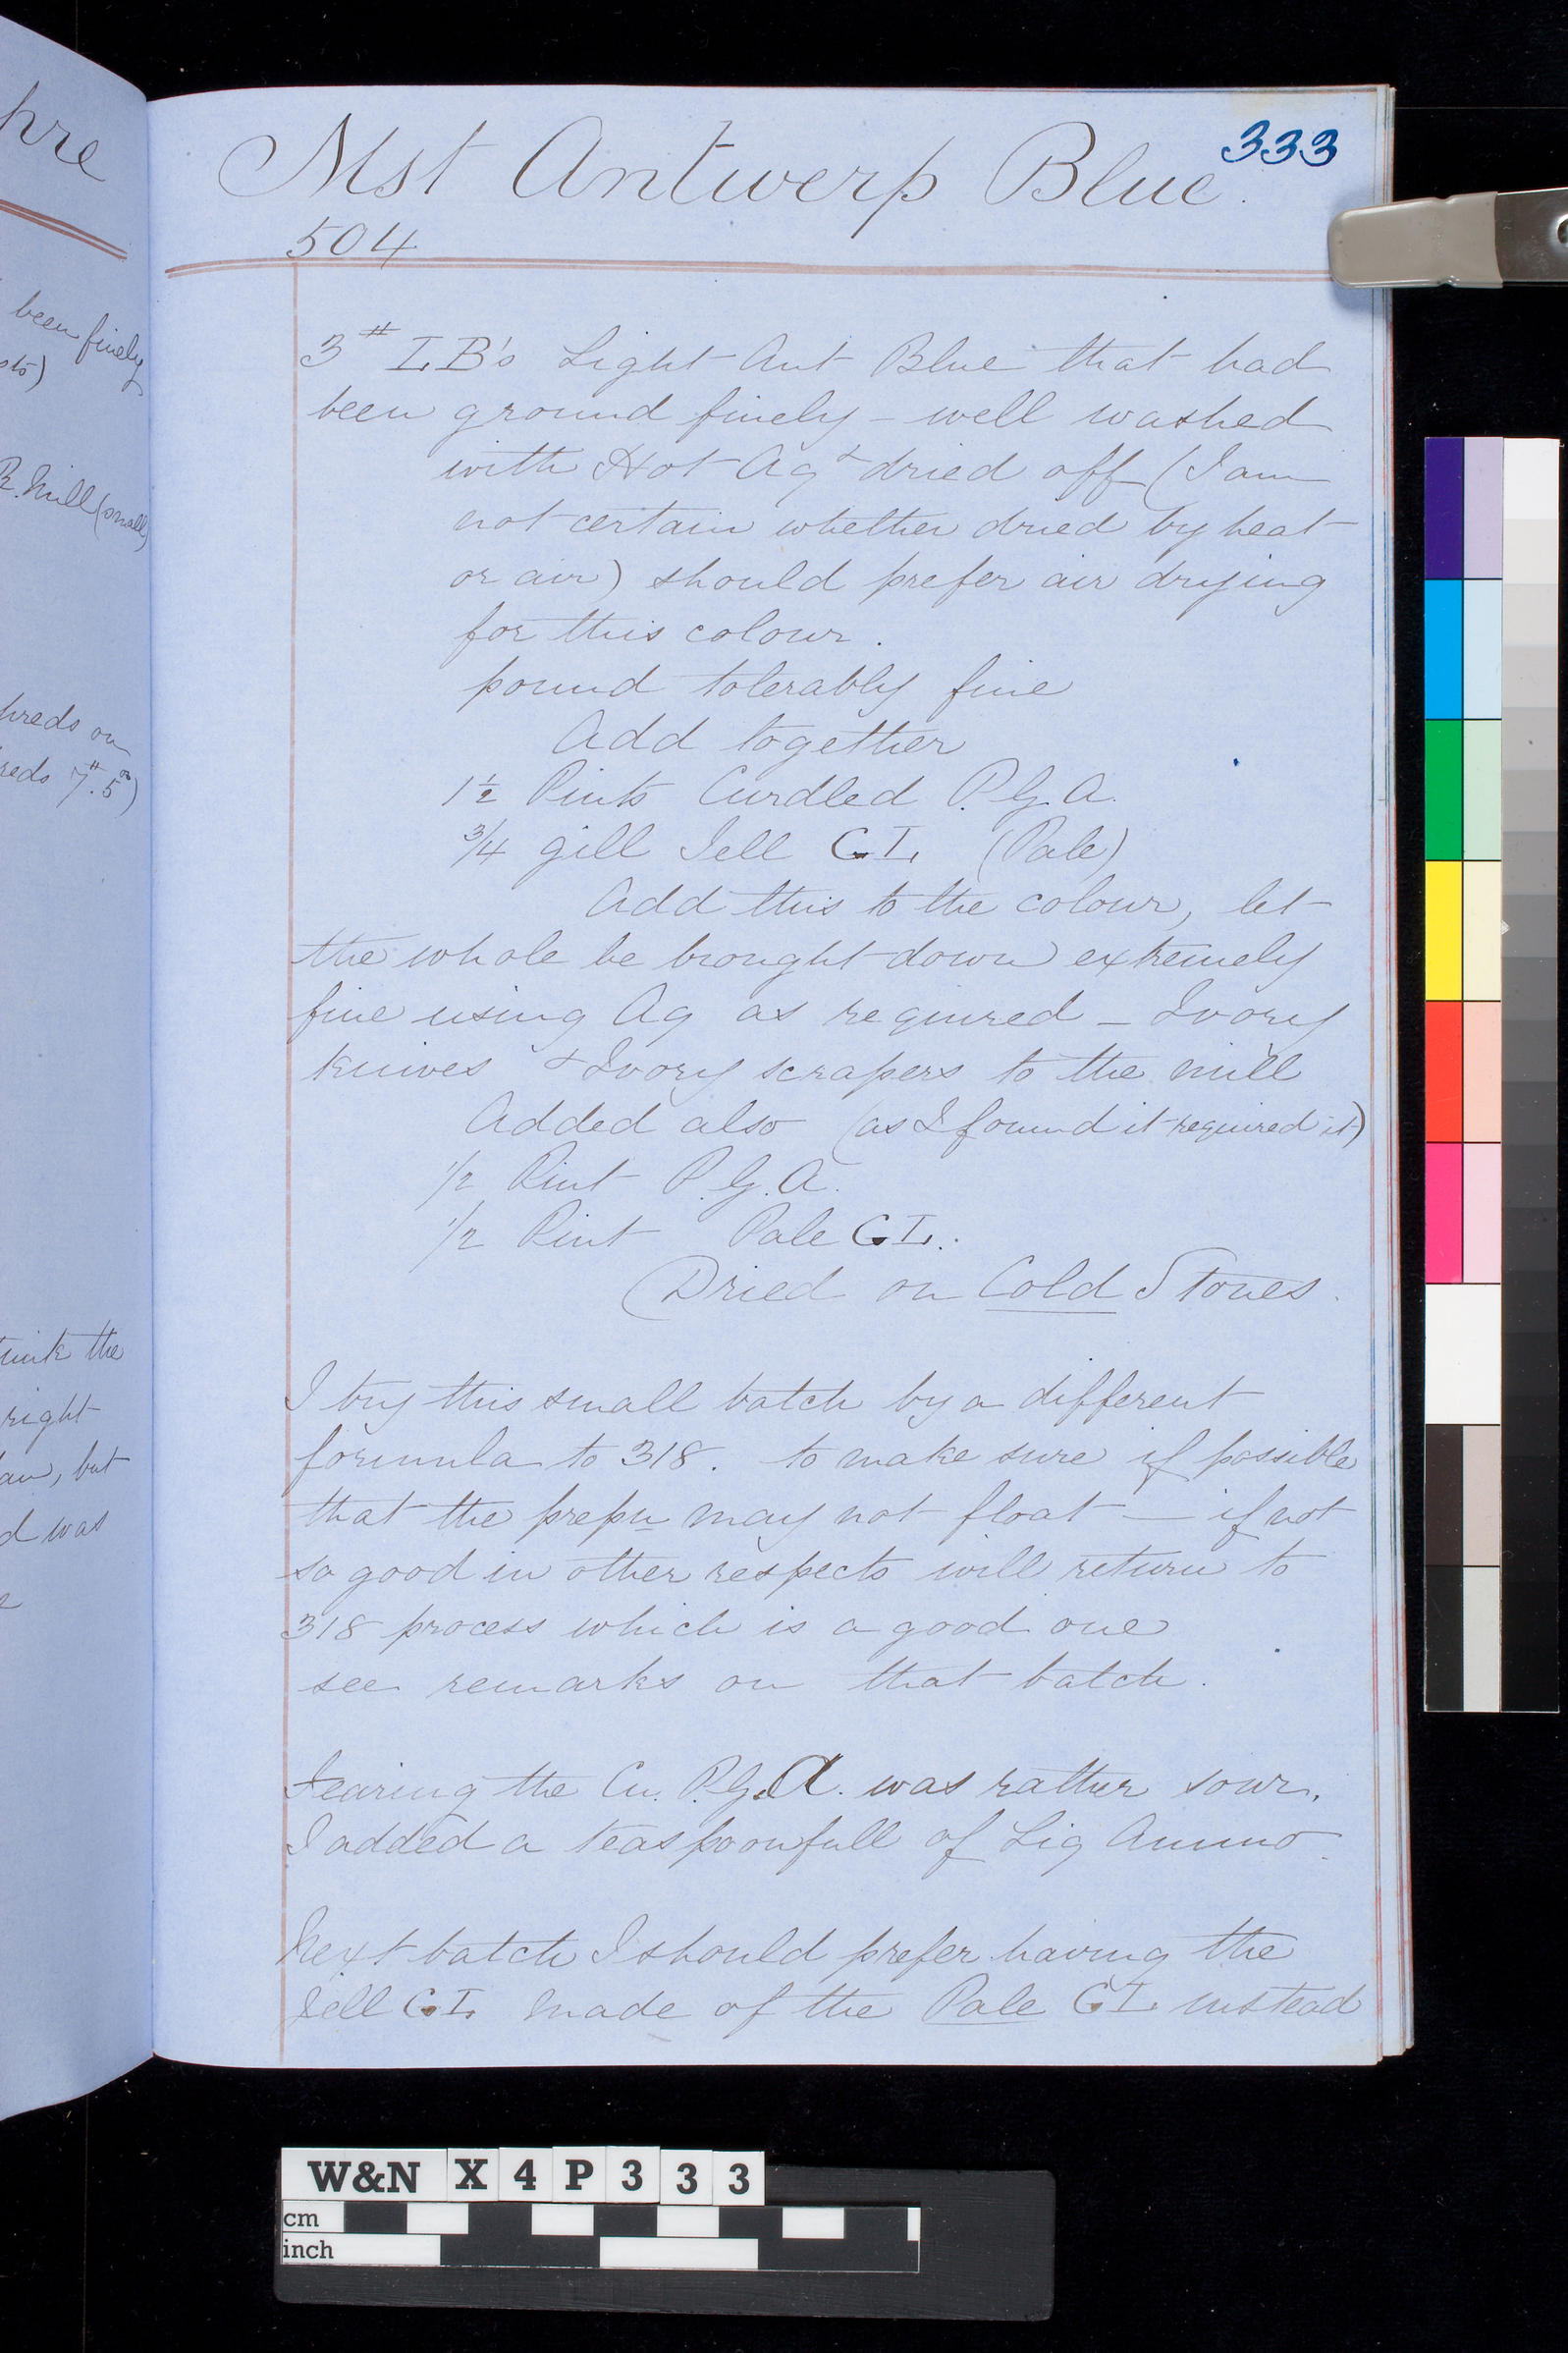 hre
been finely
sts)
R. Mill (small)
hreds on
reds 7#.5
think the
right
but
d was
Mst Antwerp Blue.
333
504
3# LB's Light Ant Blue that had
been ground finely - well washed
with Hot Aq & dried off (I am
not certain whether dried by heat
or air) should prefer air drying
for this colour.
pound tolerably fine
Add together
1½ Pints Curdled P.G.A.
3/4 gill Jell GL (Pale)
Add this to the colour, let
the whole be brought down extremely
fine using Aq as required - Ivory
knives & Ivory scrapers to the mill
Added also (as I found it required it)
1/2 Pint P.G.A.
1/2 Pint Pale GL.
(Dried on Cold Stones.
I try this small batch by a different
formula to 318. to make sure if possible
that the prepn may not float — if not
so good in other respects will return to
318 process which is a good one
see remarks on that batch.
Fearing the Cu. P.G.A. was rather sour,
I added a teaspoonfull of Liq Ammo.
Next batch I should prefer having the
Jell GL made of the Pale GL instead
W&N X 4 P 3 3 3
cm
inch